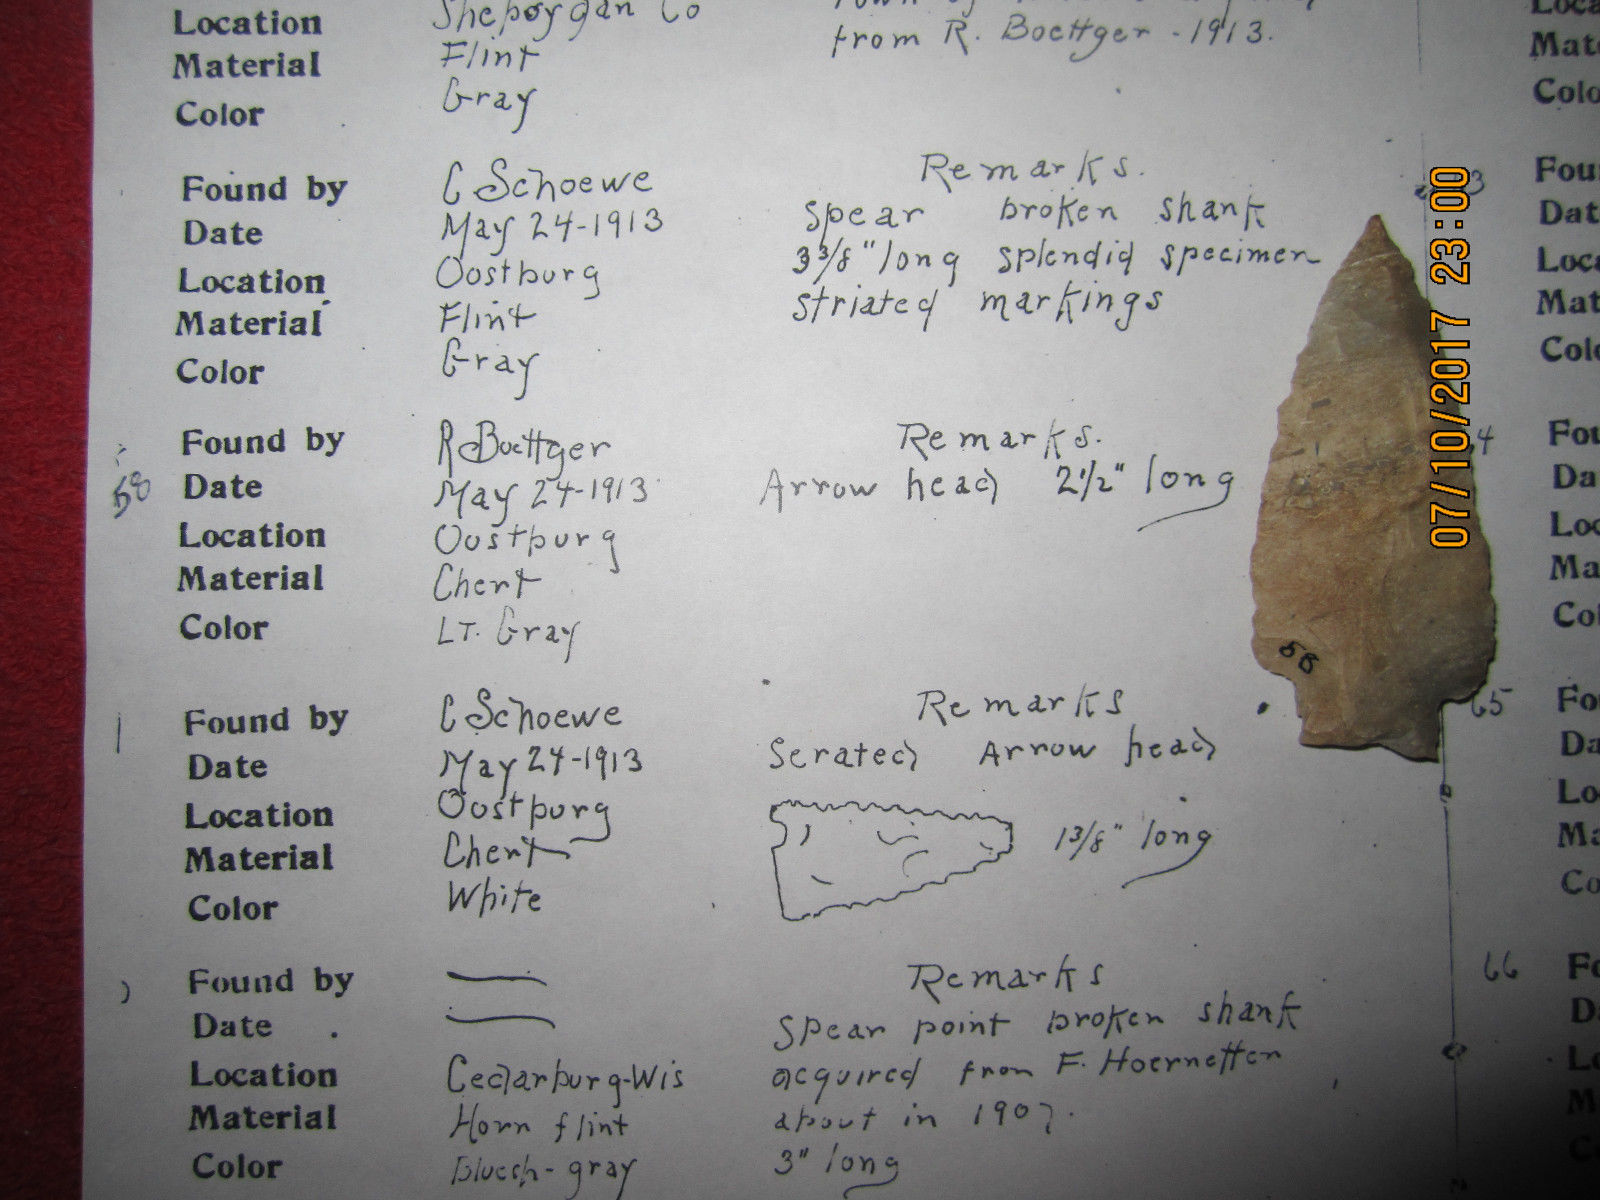 Location Sheboygan Co
from R. Boettger - 1913.
Material Flint
Color Gray
Found by C Schoewe Remarks.
Date May 24-1913 Spear broken shank
Location Oostburg 3 3/8" long splendid specimen
Material Flint striated markings
Color Gray
Found by R Boettger Remarks.
58 Date May 24-1913 Arrow head 2 1/2" long
Location Oostburg
Material Chert
Color LT. Gray
Found by C Schoewe Remarks
Date May 24-1913 Serated Arrow head
Location Oostburg
Material Chert 1 3/8" long
Color White
Found by Remarks
Date Spear point broken shank
Location Cedarburg-Wis acquired from F.
Material Horn flint about in 1907.
Color Blueish-gray 3" long
58
07/10/2017 23:00
3 Fou
Dat
Loca
Mat
Colo
4 Fou
Da
Loc
Ma
Col
65 Fo
Da
Lo
Ma
Co
66 Fo
D